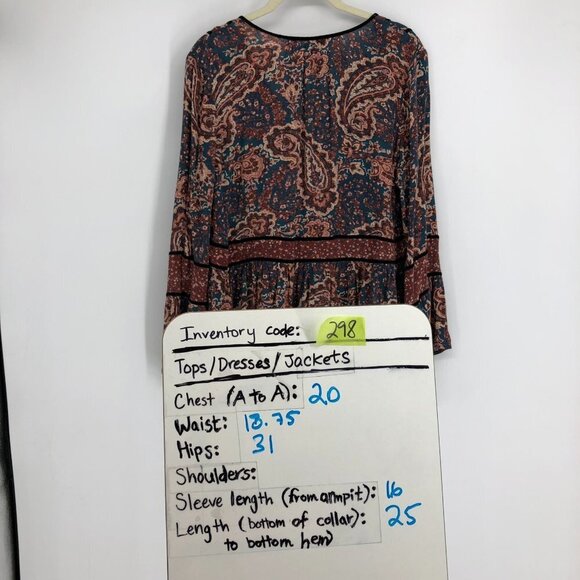 Inventory code: 298
Tops/Dresses/Jackets
Chest (A to A): 20
Waist: 18.75
Hips: 31
Shoulders:
Sleeve length (from armpit): 16
Length (bottom of collar): 25
to bottom hem)